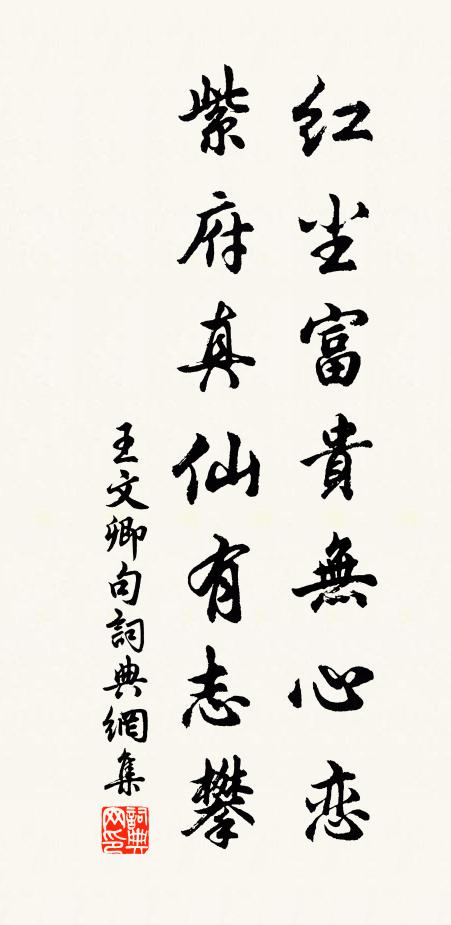 红尘富貴無心恋
紫府真仙有志攀
王文卿句詞典網集
詞典
网印